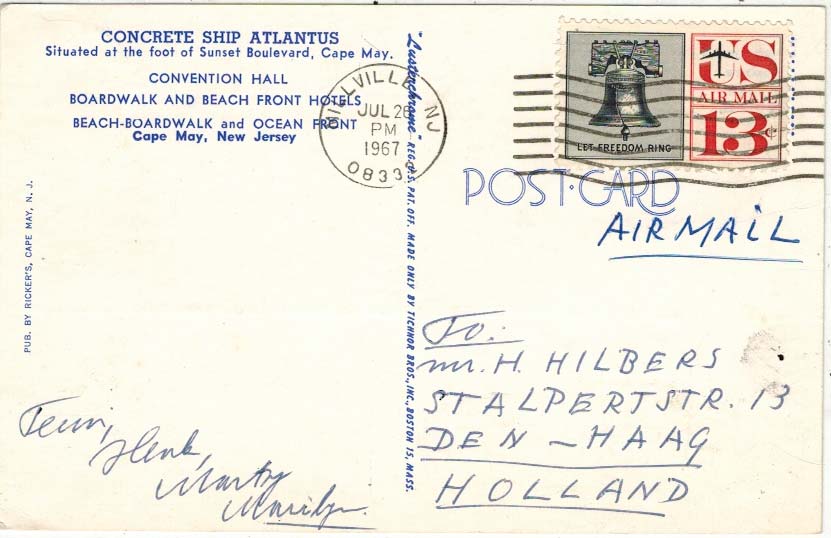 CONCRETE SHIP ATLANTUS
Situated at the foot of Sunset Boulevard, Cape May.
CONVENTION HALL
BOARDWALK AND BEACH FRONT HOTELS
BEACH-BOARDWALK and OCEAN FRONT
Cape May, New Jersey
PUB. BY RICKER'S, CAPE MAY, N. J.
"Lusterchrome" REG. U.S. PAT. OFF. MADE ONLY BY TICHNOR BROS., INC., BOSTON 15, MASS.
MILLVILLE, NJ
JUL 26
PM
1967
LET FREEDOM RING
US
AIR MAIL
13¢
POST·CARD
AIR MAIL
To:
mr. H. HILBERS
STALPERTSTR. 13
DEN - HAAG
HOLLAND
Henk,
Marty
Marilyn.